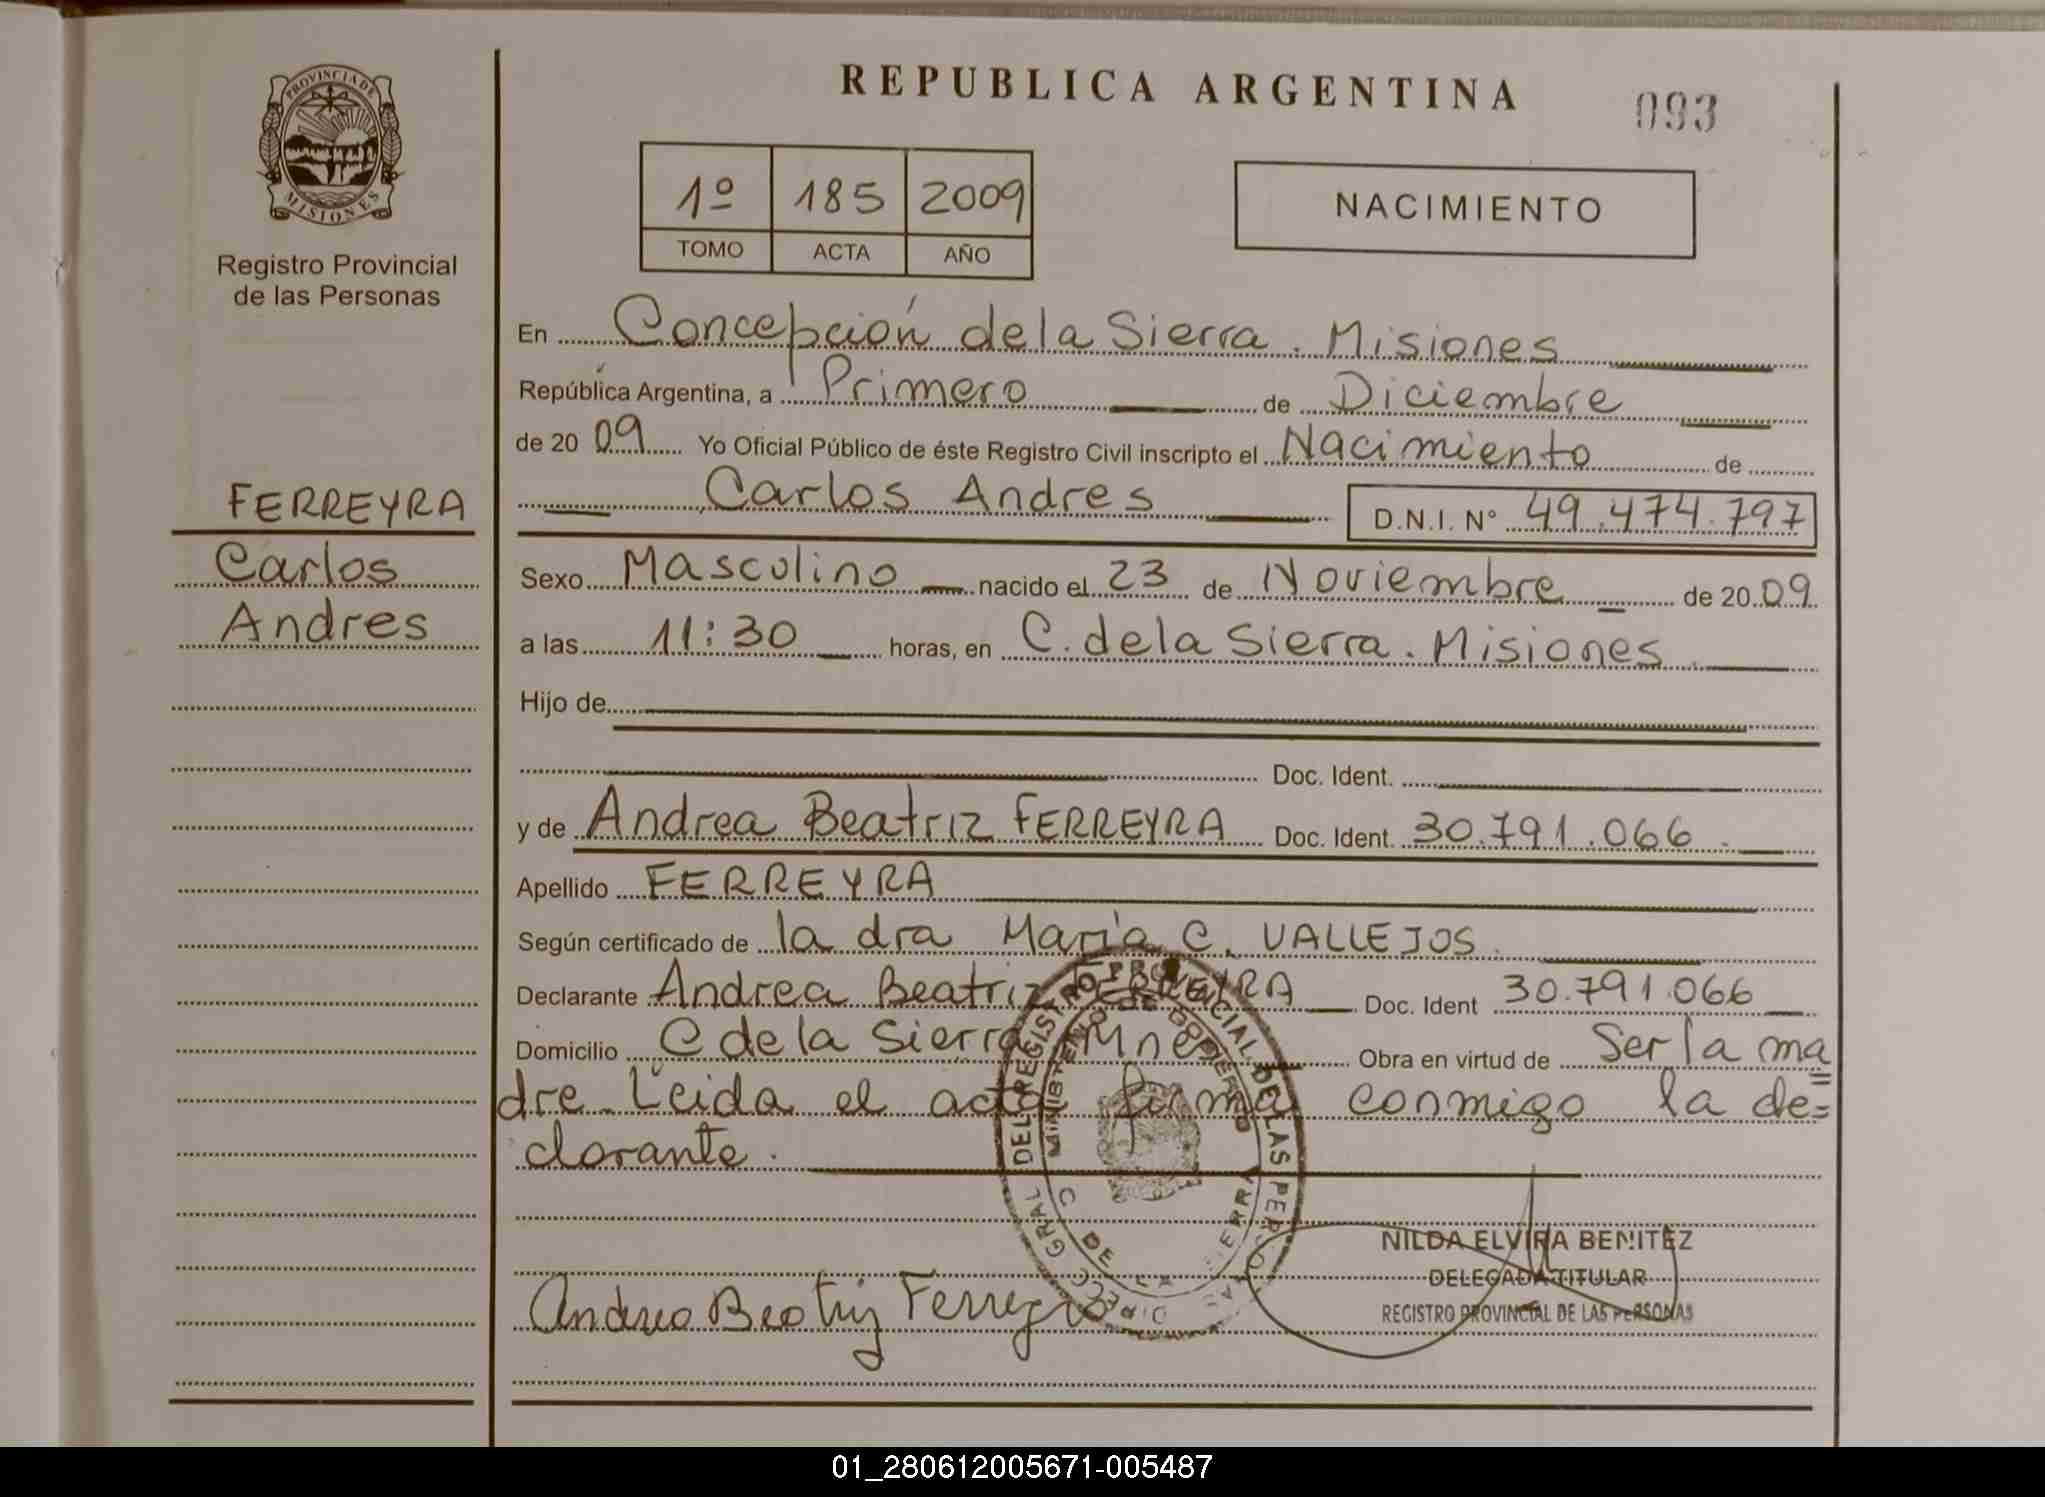 REPUBLICA ARGENTINA
093
PROVINCIA DE MISIONES
Registro Provincial
de las Personas
1º 185 2009
TOMO ACTA AÑO
NACIMIENTO
FERREYRA
Carlos
Andres
En Concepción de la Sierra. Misiones
República Argentina, a Primero de Diciembre
de 20 09 Yo Oficial Público de éste Registro Civil inscripto el Nacimiento de
Carlos Andres D.N.I. Nº 49.474.797
Sexo Masculino nacido el 23 de Noviembre de 20 09
a las 11:30 horas, en C. de la Sierra. Misiones
Hijo de
Doc. Ident.
y de Andrea Beatriz FERREYRA Doc. Ident. 30.791.066
Apellido FERREYRA
Según certificado de la dra María C. VALLEJOS
Declarante Andrea Beatriz FERREYRA Doc. Ident 30.791.066
Domicilio C de la Sierra Mnes Obra en virtud de Ser la ma
dre. Leida el acta firma conmigo la de=
clarante.
DIREC. GRAL DEL REGISTRO PROVINCIAL DE LAS PERSONAS
MINISTERIO DE GOBIERNO
C DE LA SIERRA
Andrea Beatriz Ferreyra
NILDA ELVIRA BENITEZ
DELEGADA TITULAR
REGISTRO PROVINCIAL DE LAS PERSONAS
01_280612005671-005487